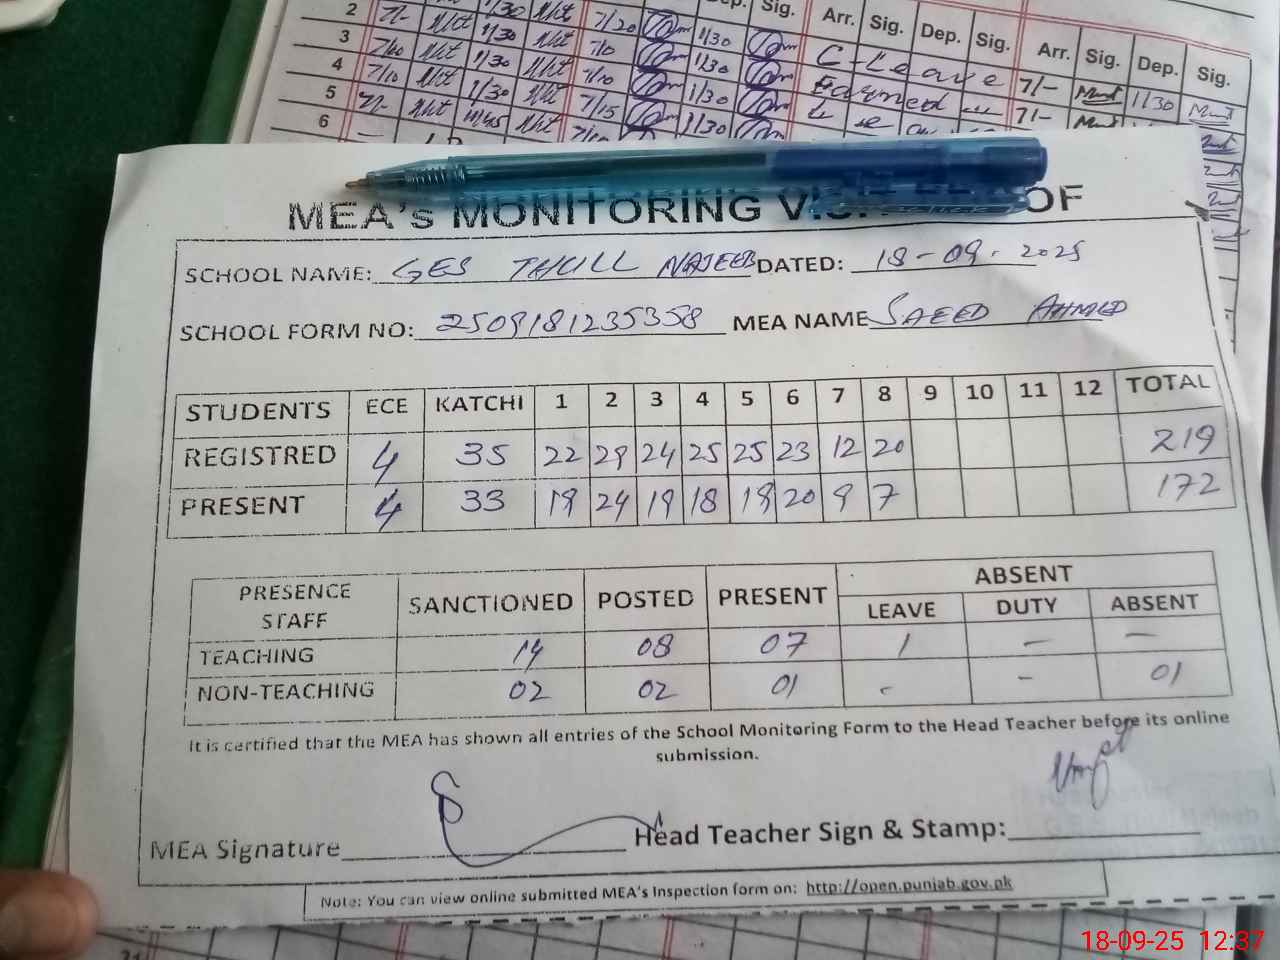 2 7/- 1/30 7/20 1/30 Arr. Sig. Dep. Sig. Arr. Sig. Dep. Sig.
3 1/30 7/10 1/30 C-Leave 7/- 1/30
4 7/10 1/30 7/10 1/30 Earned 7/-
5 7/- 7/15 1/30
6
MEA's MONITORING OF
SCHOOL NAME: GES THULL NAJEEB DATED: 18-09-2025
SCHOOL FORM NO: 2509181235358 MEA NAME SAEED AHMED
STUDENTS ECE KATCHI 1 2 3 4 5 6 7 8 9 10 11 12 TOTAL
REGISTRED 4 35 22 29 24 25 25 23 12 20 219
PRESENT 4 33 19 24 19 18 19 20 9 7 172
PRESENCE STAFF SANCTIONED POSTED PRESENT ABSENT
LEAVE DUTY ABSENT
TEACHING 14 08 07 1 - -
NON-TEACHING 02 02 01 - - 01
It is certified that the MEA has shown all entries of the School Monitoring Form to the Head Teacher before its online
submission.
MEA Signature Head Teacher Sign & Stamp:
Note: You can view online submitted MEA's Inspection form on: http://open.punjab.gov.pk
18-09-25 12:37